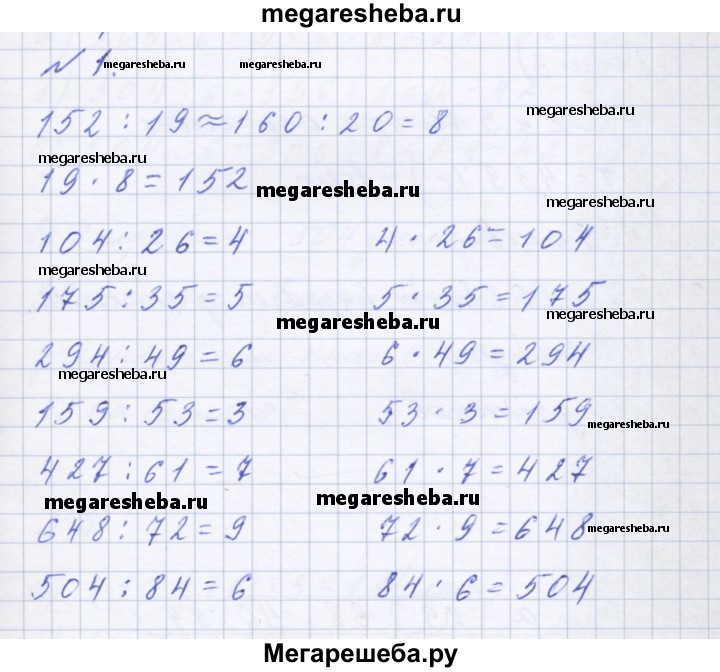 megaresheba.ru
№ 1.
megaresheba.ru megaresheba.ru
megaresheba.ru
152 : 19 ≈ 160 : 20 = 8
megaresheba.ru
19 · 8 = 152
megaresheba.ru
megaresheba.ru
104 : 26 = 4 4 · 26 = 104
megaresheba.ru
175 : 35 = 5 5 · 35 = 175
megaresheba.ru
megaresheba.ru
294 : 49 = 6 6 · 49 = 294
megaresheba.ru
159 : 53 = 3 53 · 3 = 159
megaresheba.ru
427 : 61 = 7 61 · 7 = 427
megaresheba.ru megaresheba.ru
648 : 72 = 9 72 · 9 = 648
megaresheba.ru
504 : 84 = 6 84 · 6 = 504
Мегарешеба.ру